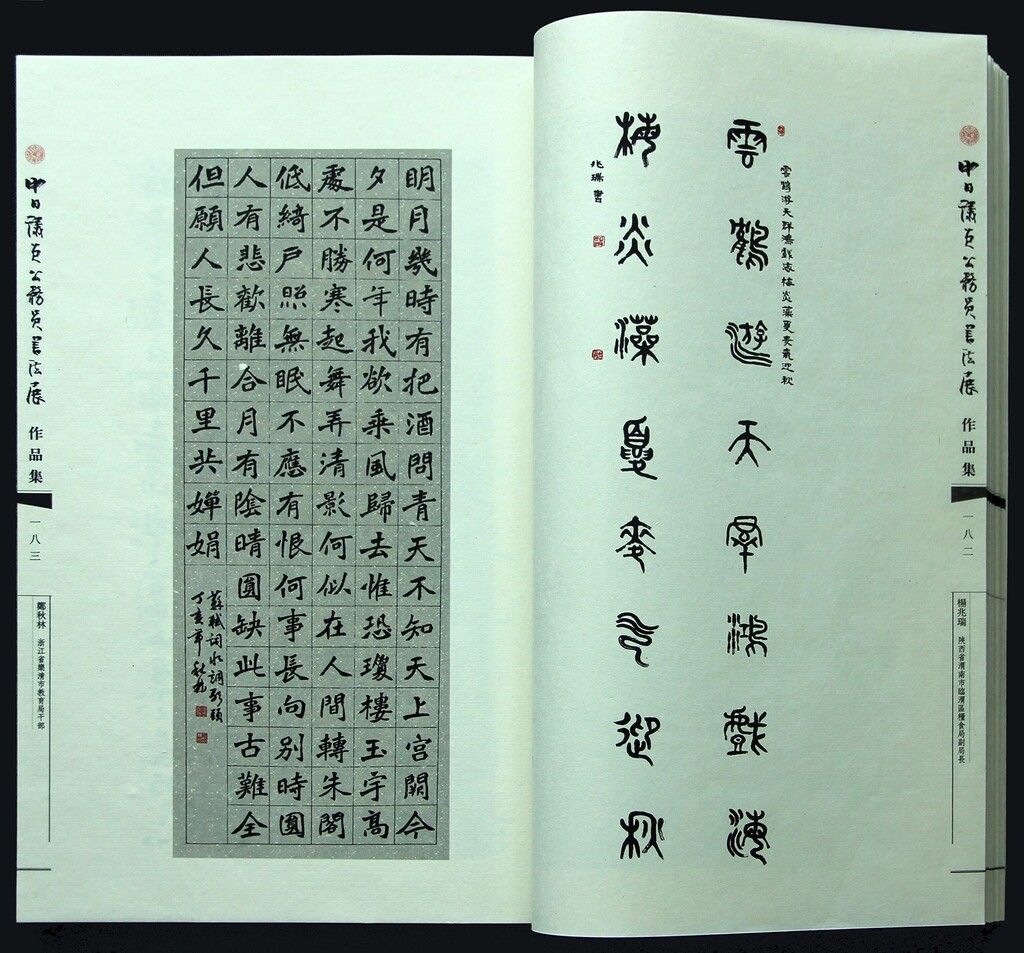 中日議員公務員書法展
作品集
一八二
楊兆瑞 陝西省渭南市臨渭區糧食局副局長
雲鶴游天群鴻戲海梅炎藻夏麥氣迎秋
雲鶴遊天羣鴻戲海
梅炎藻夏麥气迎秋
兆瑞書
明月幾時有把酒問青天不知天上宮闕今
夕是何年我欲乘風歸去惟恐瓊樓玉宇高
處不勝寒起舞弄清影何似在人間轉朱閣
低綺戶照無眠不應有恨何事長向別時圓
人有悲歡離合月有陰晴圓缺此事古難全
但願人長久千里共嬋娟
蘇軾詞水調歌頭
丁亥年秋林
中日議員公務員書法展
作品集
一八三
鄭秋林 浙江省樂清市教育局干部